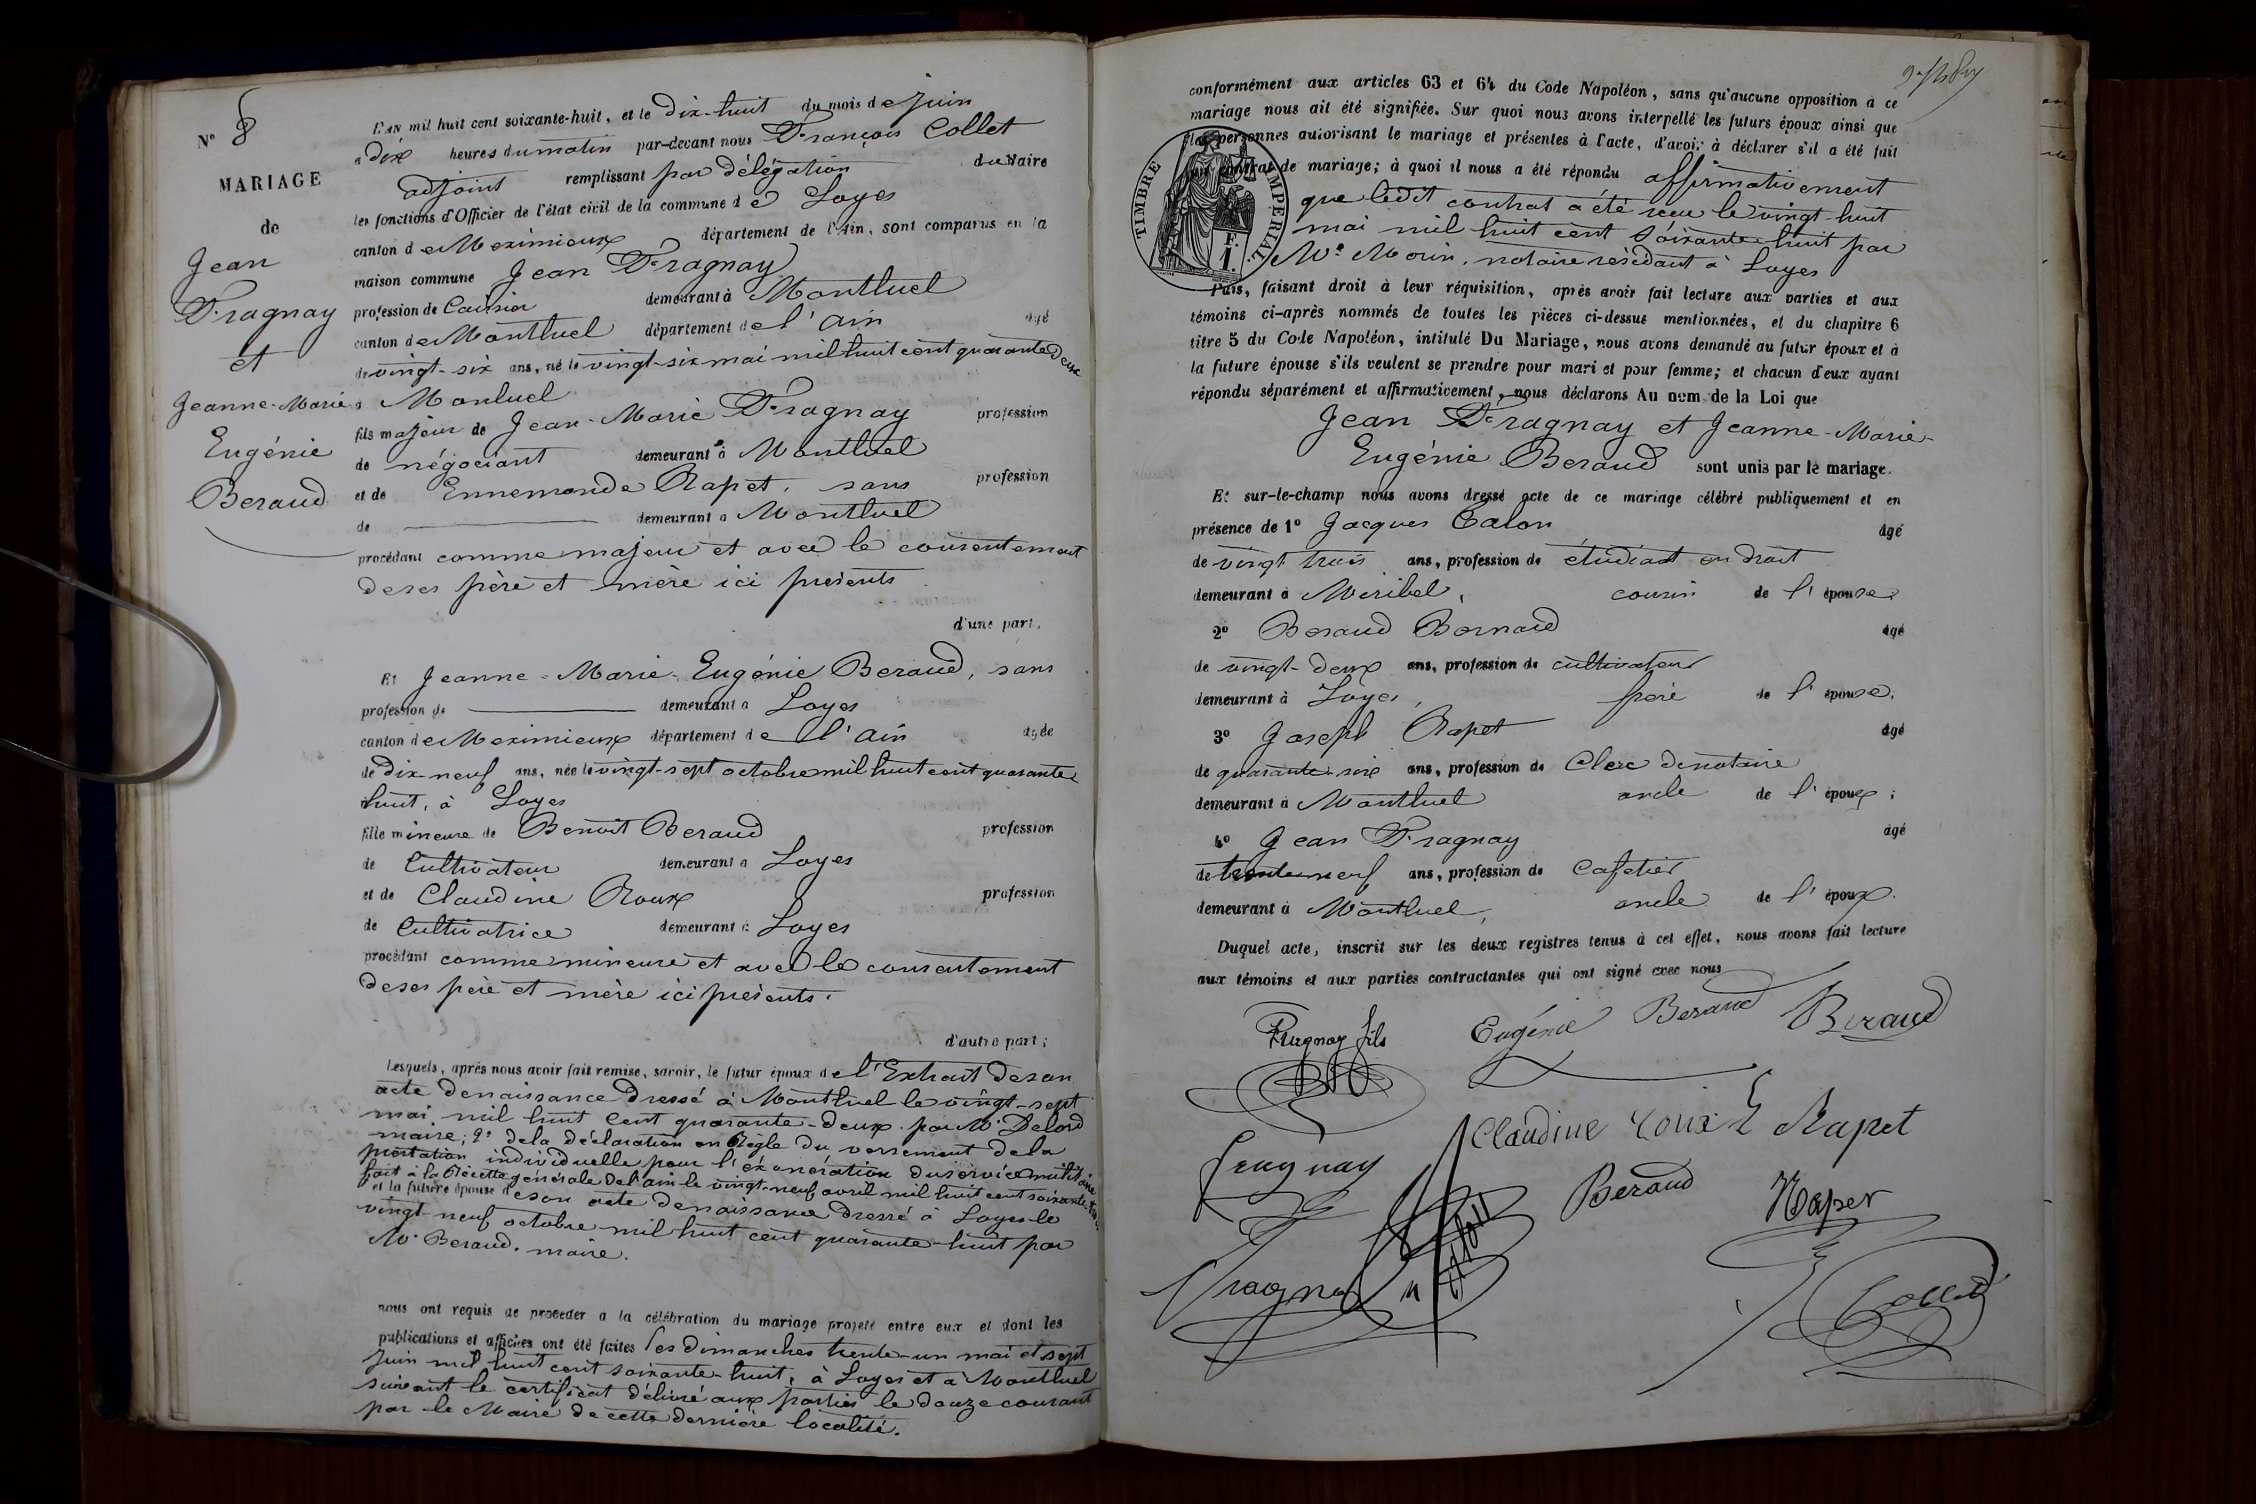 N° 8
MARIAGE
de
Jean
Fragnay
et
Jeanne-Marie
Eugénie
Beraud
L'an mil huit cent soixante-huit, et le dix-huit du mois de Juin
à dix heures du matin par-devant nous François Collet
adjoint remplissant par délégation du Maire
les fonctions d'Officier de l'état civil de la commune de Loyes
canton de Meximieux département de l'Ain, sont comparus en la
maison commune Jean Fragnay
profession de demeurant à Montluel
canton de Montluel département de l'Ain âgé
de vingt-six ans, né le vingt-six mai mil huit cent quarante deux
à Montluel
fils majeur de Jean-Marie Fragnay profession
de négociant demeurant à Montluel
et de Ennemonde Rapet, sans profession
de demeurant à Montluel
procédant comme majeur et avec le consentement
de ses père et mère ici présents
d'une part,
Et Jeanne-Marie-Eugénie Beraud, sans
profession de demeurant à Loyes
canton de Meximieux département de l'Ain âgée
de dix-neuf ans, née le vingt-sept octobre mil huit cent quarante
huit, à Loyes
fille mineure de Benoit Beraud profession
de Cultivateur demeurant à Loyes
et de Claudine Roux profession
de Cultivatrice demeurant à Loyes
procédant comme mineure et avec le consentement
de ses père et mère ici présents.
d'autre part;
Lesquels, après nous avoir fait remise, savoir, le futur époux de l'Extrait de son
acte de naissance dressé à Montluel le vingt-sept
mai mil huit cent quarante-deux par Mr Delord
maire; 2° de la déclaration en Règle du versement de la
prestation individuelle pour l'exonération du service militaire
fait à la Récette générale de l'ain le vingt-neuf avril mil huit cent soixante-trois
et la future épouse de son acte de naissance dressé à Loyes le
vingt-neuf octobre mil huit cent quarante-huit par
Mr Beraud, maire.
nous ont requis de procéder à la célébration du mariage projeté entre eux et dont les
publications et affiches ont été faites les dimanches trente-un mai et sept
Juin mil huit cent soixante-huit, à Loyes et à Montluel
suivant le certificat délivré aux parties le douze courant
par le Maire de cette dernière localité.
conformément aux articles 63 et 64 du Code Napoléon, sans qu'aucune opposition à ce
mariage nous ait été signifiée. Sur quoi nous avons interpellé les futurs époux ainsi que
les personnes autorisant le mariage et présentes à l'acte, d'avoir à déclarer s'il a été fait
un contrat de mariage; à quoi il nous a été répondu affirmativement
que ledit contrat a été reçu le vingt-huit
mai mil huit cent soixante-huit par
Me Morin, notaire résidant à Loyes
TIMBRE IMPERIAL
F.
1.
Puis, faisant droit à leur réquisition, après avoir fait lecture aux parties et aux
témoins ci-après nommés de toutes les pièces ci-dessus mentionnées, et du chapitre 6
titre 5 du Code Napoléon, intitulé Du Mariage, nous avons demandé au futur époux et à
la future épouse s'ils veulent se prendre pour mari et pour femme; et chacun d'eux ayant
répondu séparément et affirmativement, nous déclarons Au nom de la Loi que
Jean Fragnay et Jeanne-Marie-
Eugénie Beraud sont unis par le mariage.
Et sur-le-champ nous avons dressé acte de ce mariage célébré publiquement et en
présence de 1° Jacques Calon âgé
de vingt trois ans, profession de étudiant en droit
demeurant à Miribel, cousin de l'épouse.
2° Beraud Bernard âgé
de vingt-deux ans, profession de cultivateur
demeurant à Loyes, frère de l'épouse.
3° Joseph Rapet âgé
de quarante-six ans, profession de Clerc de notaire
demeurant à Montluel oncle de l'époux;
4° Jean Fragnay âgé
de trente-neuf ans, profession de Cafetier
demeurant à Montluel, oncle de l'époux.
Duquel acte, inscrit sur les deux registres tenus à cet effet, nous avons fait lecture
aux témoins et aux parties contractantes qui ont signé avec nous
Fragnay fils Eugénie Beraud Beraud
Claudine Roux E Rapet
Fragnay
Beraud Rapet
Fragnay
Collet